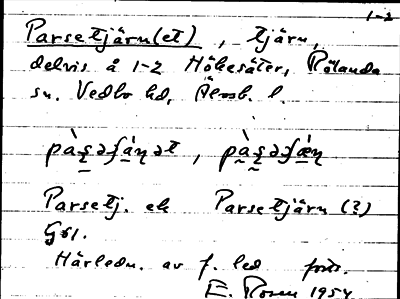 1-2
Parsetjärn(et), tjärn,
delvis å 1-2 Hökesäter, Rölanda
sn. Vedbo hd, Älvsb. l.
pàʂəʃänət, pàʂəʃæ̀ɳ
Parsetj. ek Parsetjärn (?)
GSl.
Härledn. av f. led
E. Rosen 1954